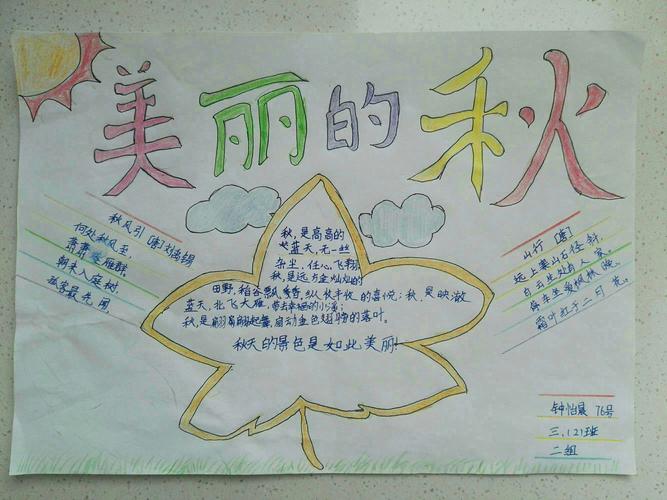 美丽的秋
秋风引 [唐]刘禹锡
何处秋风至,
萧萧送雁群
朝来入庭树,
孤客最先闻
秋,是高高的
蓝天,无一丝
杂尘,任心飞翔;
秋,是远方金灿灿的
田野,稻谷飘香,纵
的喜悦;秋,是映澈
蓝天,北飞大雁,带去幸福的小溪;
秋,是翩翩起舞,扇动金色翅膀的落叶。
秋天的景色是如此美丽!
山行 [唐]
远上寒山石径斜,
白云生处有人家。
停车坐爱枫林晚,
霜叶红于二月花。
钟怡晨 76号
三.(2)班
二组